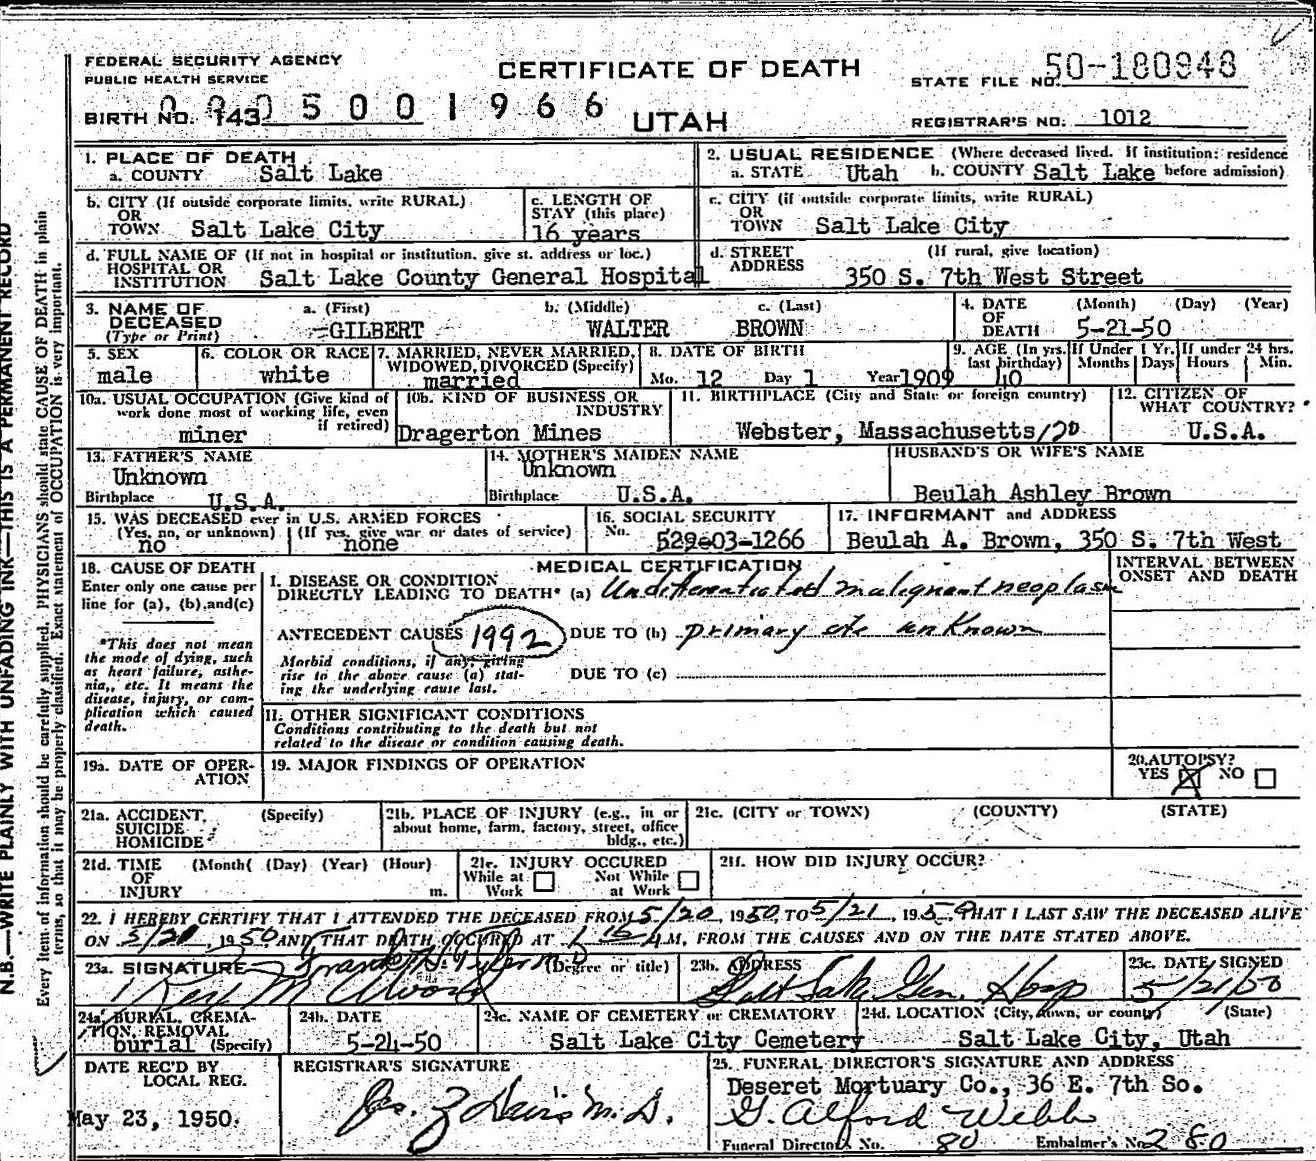 FEDERAL SECURITY AGENCY
PUBLIC HEALTH SERVICE
CERTIFICATE OF DEATH
STATE FILE NO. 50-180948
BIRTH NO. 143 0005001966
UTAH
REGISTRAR'S NO. 1012
1. PLACE OF DEATH
a. COUNTY Salt Lake
2. USUAL RESIDENCE (Where deceased lived. If institution: residence
a. STATE Utah b. COUNTY Salt Lake before admission)
b. CITY (If outside corporate limits, write RURAL)
OR
TOWN Salt Lake City
c. LENGTH OF
STAY (this place)
16 years
c. CITY (if outside corporate limits, write RURAL)
OR
TOWN Salt Lake City
d. FULL NAME OF (If not in hospital or institution, give st. address or loc.)
HOSPITAL OR
INSTITUTION Salt Lake County General Hospital
d. STREET (If rural, give location)
ADDRESS 350 S. 7th West Street
3. NAME OF DECEASED
(Type or Print)
a. (First) b. (Middle) c. (Last)
GILBERT WALTER BROWN
4. DATE OF DEATH (Month) (Day) (Year)
5-21-50
5. SEX
male
6. COLOR OR RACE
white
7. MARRIED, NEVER MARRIED,
WIDOWED, DIVORCED (Specify)
married
8. DATE OF BIRTH
Mo. 12 Day 1 Year 1909
9. AGE (In yrs. last birthday)
40
If Under 1 Yr.
Months Days
If under 24 hrs.
Hours Min.
10a. USUAL OCCUPATION (Give kind of
work done most of working life, even
if retired)
miner
10b. KIND OF BUSINESS OR
INDUSTRY
Dragerton Mines
11. BIRTHPLACE (City and State or foreign country)
Webster, Massachusetts 120
12. CITIZEN OF
WHAT COUNTRY?
U.S.A.
13. FATHER'S NAME
Unknown
Birthplace U.S.A.
14. MOTHER'S MAIDEN NAME
Unknown
Birthplace U.S.A.
HUSBAND'S OR WIFE'S NAME
Beulah Ashley Brown
15. WAS DECEASED ever in U.S. ARMED FORCES
(Yes, no, or unknown) (If yes, give war or dates of service)
no none
16. SOCIAL SECURITY
No. 529-03-1266
17. INFORMANT and ADDRESS
Beulah A. Brown, 350 S. 7th West
18. CAUSE OF DEATH
Enter only one cause per
line for (a), (b), and (c)
*This does not mean
the mode of dying, such
as heart failure, asthe-
nia,, etc. It means the
disease, injury, or com-
plication which caused
death.
MEDICAL CERTIFICATION
INTERVAL BETWEEN
ONSET AND DEATH
I. DISEASE OR CONDITION
DIRECTLY LEADING TO DEATH* (a) Undifferentiated malignant neoplasm
ANTECEDENT CAUSES 1992 DUE TO (b) primary site unknown
Morbid conditions, if any, giving
rise to the above cause (a) stat-
ing the underlying cause last.
DUE TO (c)
II. OTHER SIGNIFICANT CONDITIONS
Conditions contributing to the death but not
related to the disease or condition causing death.
19a. DATE OF OPER-
ATION
19. MAJOR FINDINGS OF OPERATION
20. AUTOPSY?
YES NO
21a. ACCIDENT, (Specify)
SUICIDE
HOMICIDE
21b. PLACE OF INJURY (e.g., in or
about home, farm, factory, street, office
bldg., etc.)
21c. (CITY or TOWN) (COUNTY) (STATE)
21d. TIME (Month( (Day) (Year) (Hour)
OF
INJURY m.
21e. INJURY OCCURED
While at Work Not While at Work
21f. HOW DID INJURY OCCUR?
22. I HEREBY CERTIFY THAT I ATTENDED THE DECEASED FROM 5/20, 1950, TO 5/21, 1950, THAT I LAST SAW THE DECEASED ALIVE
ON 5/20, 1950 AND THAT DEATH OCCURED AT 1 15 A.M. FROM THE CAUSES AND ON THE DATE STATED ABOVE.
23a. SIGNATURE (Degree or title)
Frank H. Tyler M D
23b. ADDRESS
Salt Lake Gen. Hosp
23c. DATE SIGNED
5/21/50
24a. BURIAL, CREMA-
TION, REMOVAL
burial (Specify)
24b. DATE
5-24-50
24c. NAME OF CEMETERY or CREMATORY
Salt Lake City Cemetery
24d. LOCATION (City, town, or county) (State)
Salt Lake City, Utah
DATE REC'D BY
LOCAL REG.
May 23, 1950.
REGISTRAR'S SIGNATURE
25. FUNERAL DIRECTOR'S SIGNATURE AND ADDRESS
Deseret Mortuary Co., 36 E. 7th So.
G. Alford Webb
Funeral Director's No. 80 Embalmer's No. 280
N.B.—WRITE PLAINLY WITH UNFADING INK—THIS IS A PERMANENT RECORD
Every item of information should be carefully supplied. PHYSICIANS should state CAUSE OF DEATH in plain
terms, so that it may be properly classified. Exact statement of OCCUPATION is very important.